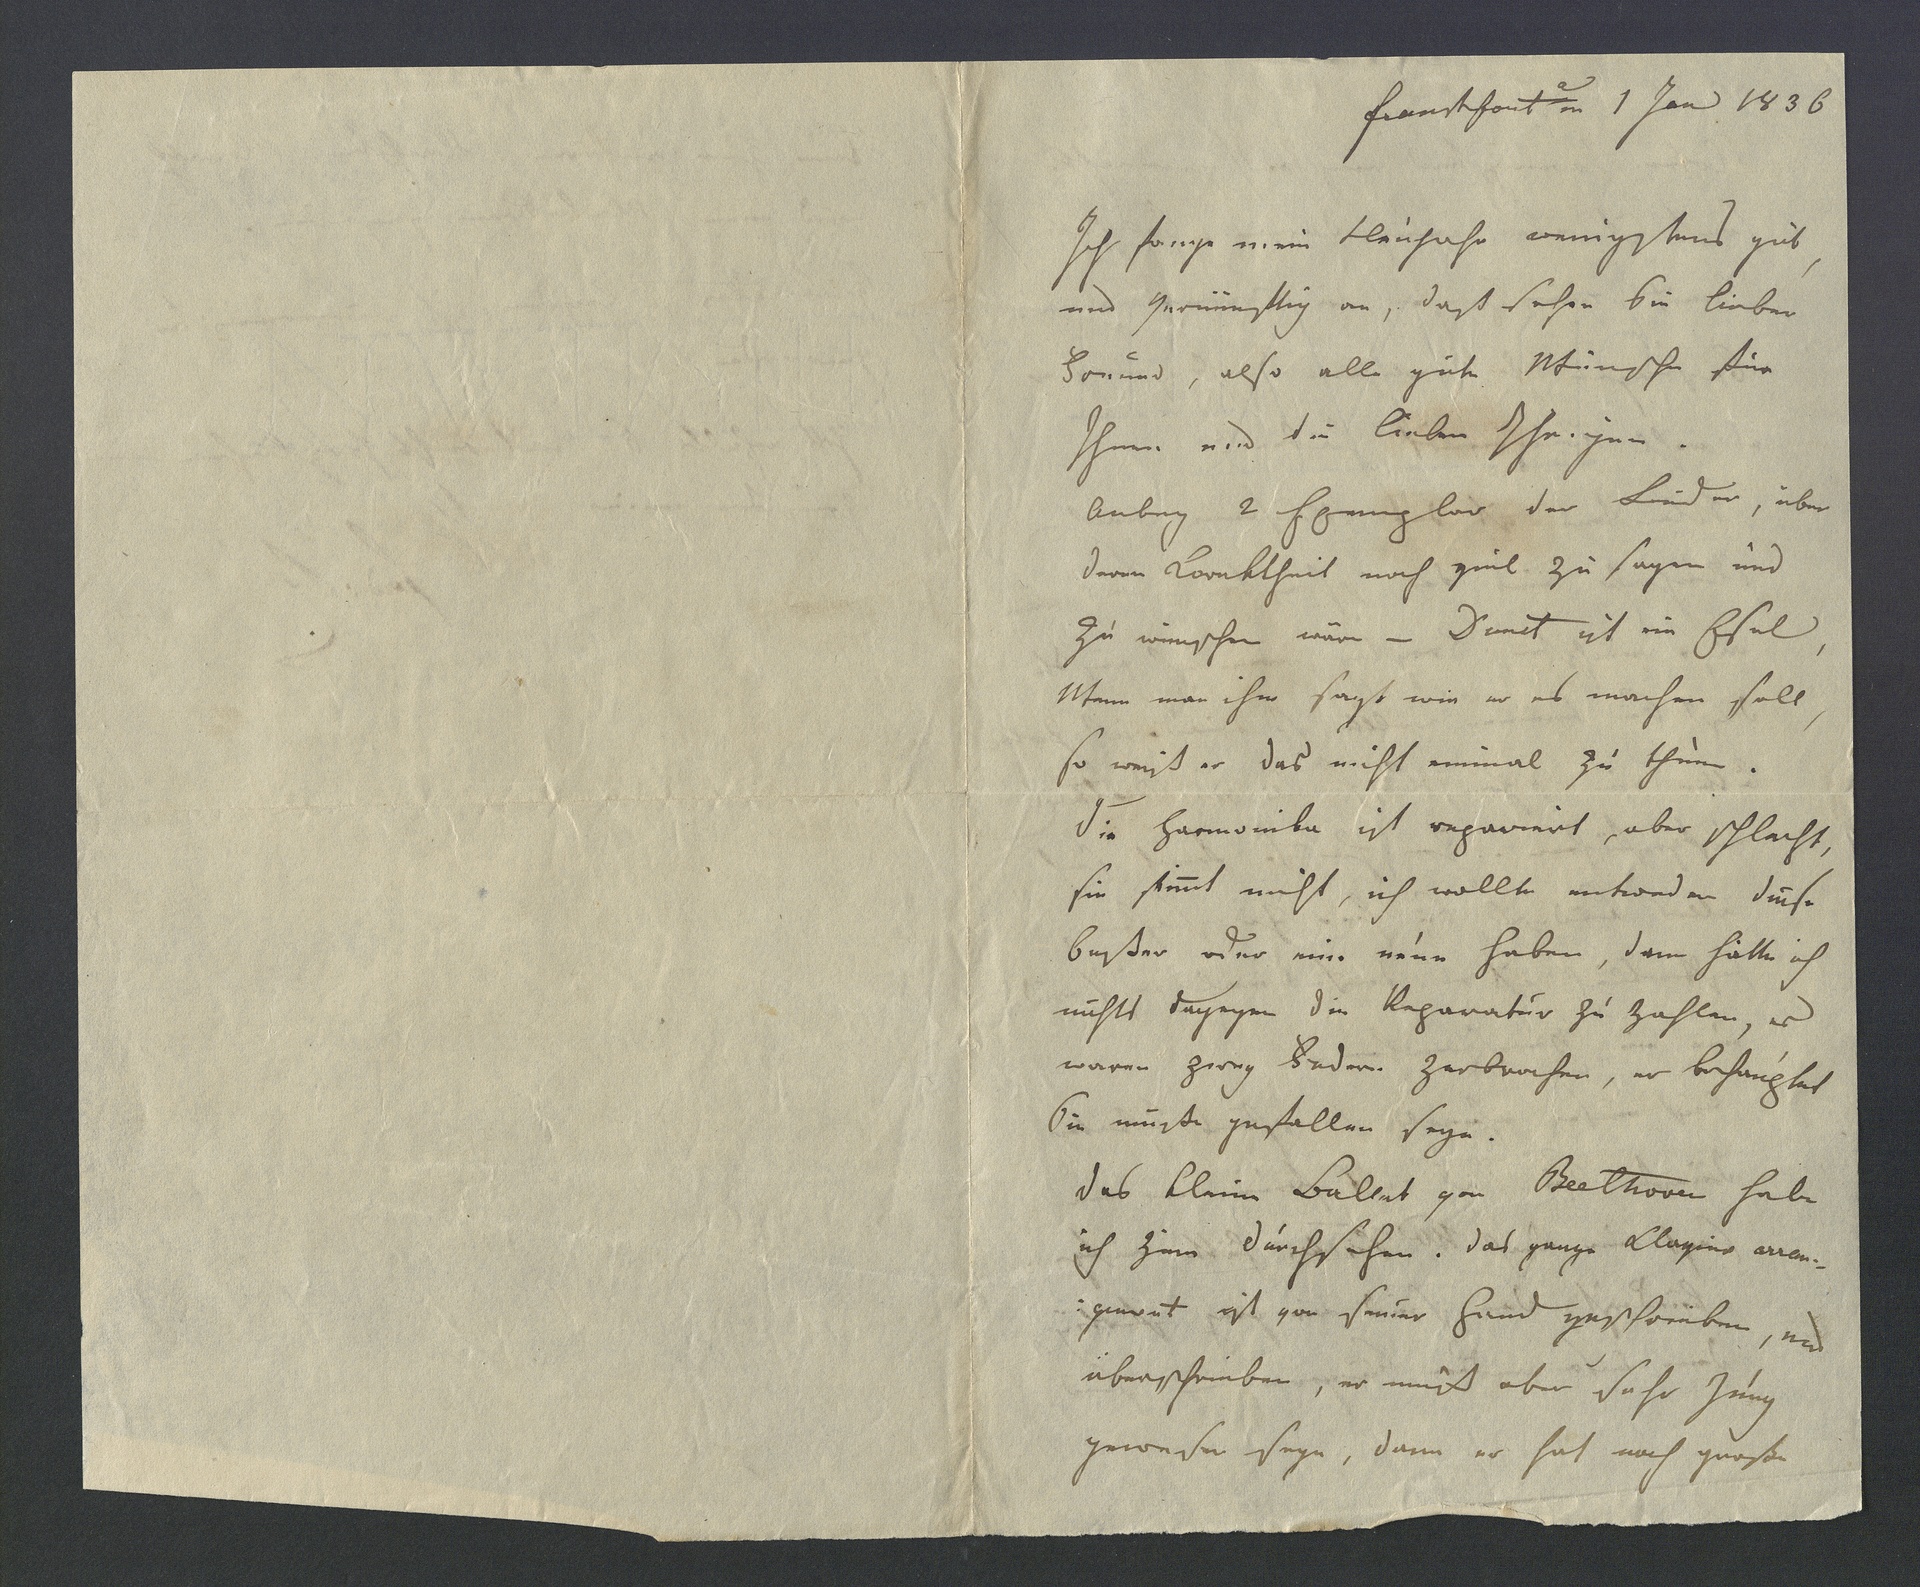 Frankfurt a/m 1 Jan 1836
Ich fange mein Neujahr wenigstens gut,
und vernünftig an, daß sehen Sie lieber
Freund, also alle gute Wünsche für
Ihnen und die lieben Ihrigen.
Anbey 2 Exemplar der Lieder, über
deren Korektheit noch viel zu sagen und
zu wünschen wäre – Dunst ist ein Esel,
Wenn man ihm sagt wie er es machen soll,
so weiß er das nicht einmal zu thun.
Die Harmonika ist repariert, aber schlecht,
sie stim̄t nicht, ich wollte entweder diese
beßer oder eine neue haben, dann hätte ich
nichts dagegen die Reparatur zu zahlen, es
waren zwey Federn zerbrochen, er behauptet
Sie müßte gefallen seyn.
das kleine Ballet von Beethoven habe
ich zum durchsehen. das ganze Klavier arran-
:gement ist von seiner Hand geschrieben, und
überschrieben, er muß aber sehr jung
gewesen seyn, denn er hat noch große